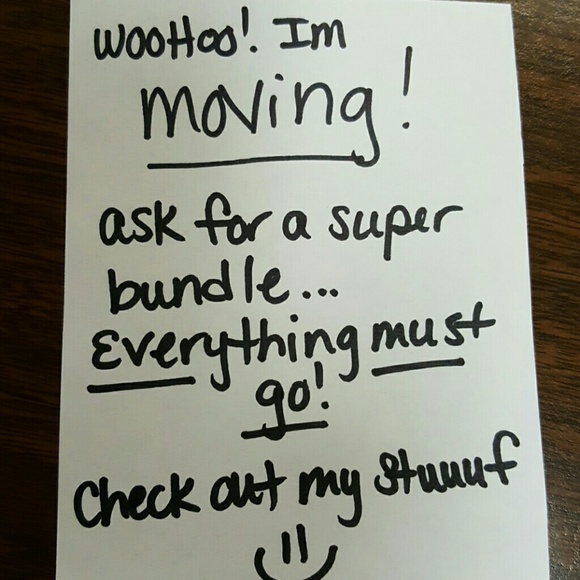 WooHoo! Im
moving!
ask for a super
bundle...
Everything must
go!
Check out my stuuuf